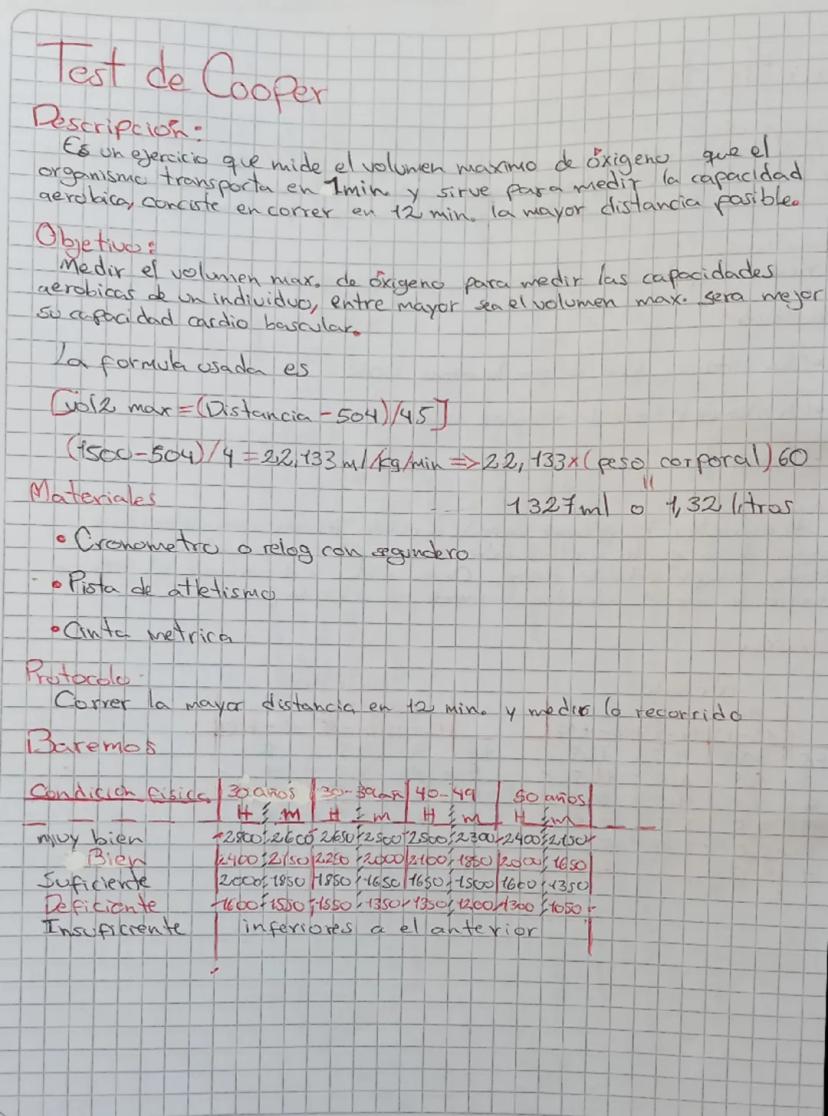 Test de Cooper
Descripcion:
Es un ejercicio que mide el volumen maximo de oxigeno que el
organismo transporta en 1min y sirve para medir la capacidad
aerobica, conciste en correr en 12 min. la mayor distancia posible.
Objetivo:
Medir el volumen max. de oxigeno para medir las capacidades
aerobicas de un individuo, entre mayor sea el volumen max. sera mejor
su capacidad cardio bascular.
La formula usada es
[vol2 max = (Distancia - 504)/45]
(1500-504)/4 = 22,133 ml/kg/min => 22,133x(peso corporal)60
"
Materiales 1327ml o 1,32 litros
• Cronometro o relog con segundero
• Pista de atletismo
• Cinta metrica
Protocolo
Correr la mayor distancia en 12 min. y medir lo recorrido
Baremos
Condicion fisica 30 años 30-39 40-49 50 años
H m H m H m H m
muy bien 2800 2600 2650 2500 2500 2300 2400 2150
Bien 2400 2150 2250 2000 2100 1850 2000 1650
Suficiente 2000 1850 1850 1650 1650 1500 1600 1350
Deficiente 1600 1550 1550 1350 1350 1200 1300 1050
Insuficiente inferiores a el anterior